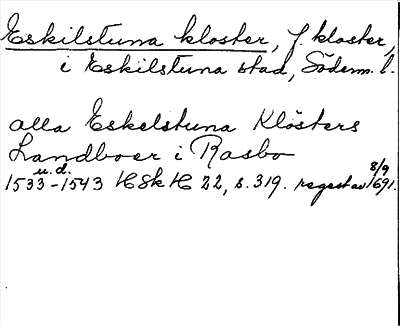 Eskilstuna kloster, f. kloster,
i Eskilstuna stad, Söderm. l.
alla Eskelstuna Klösters
Landboer i Rasbo
u.d. 8/9
1533-1543 HSkH 22, s. 319. regest av 1691.